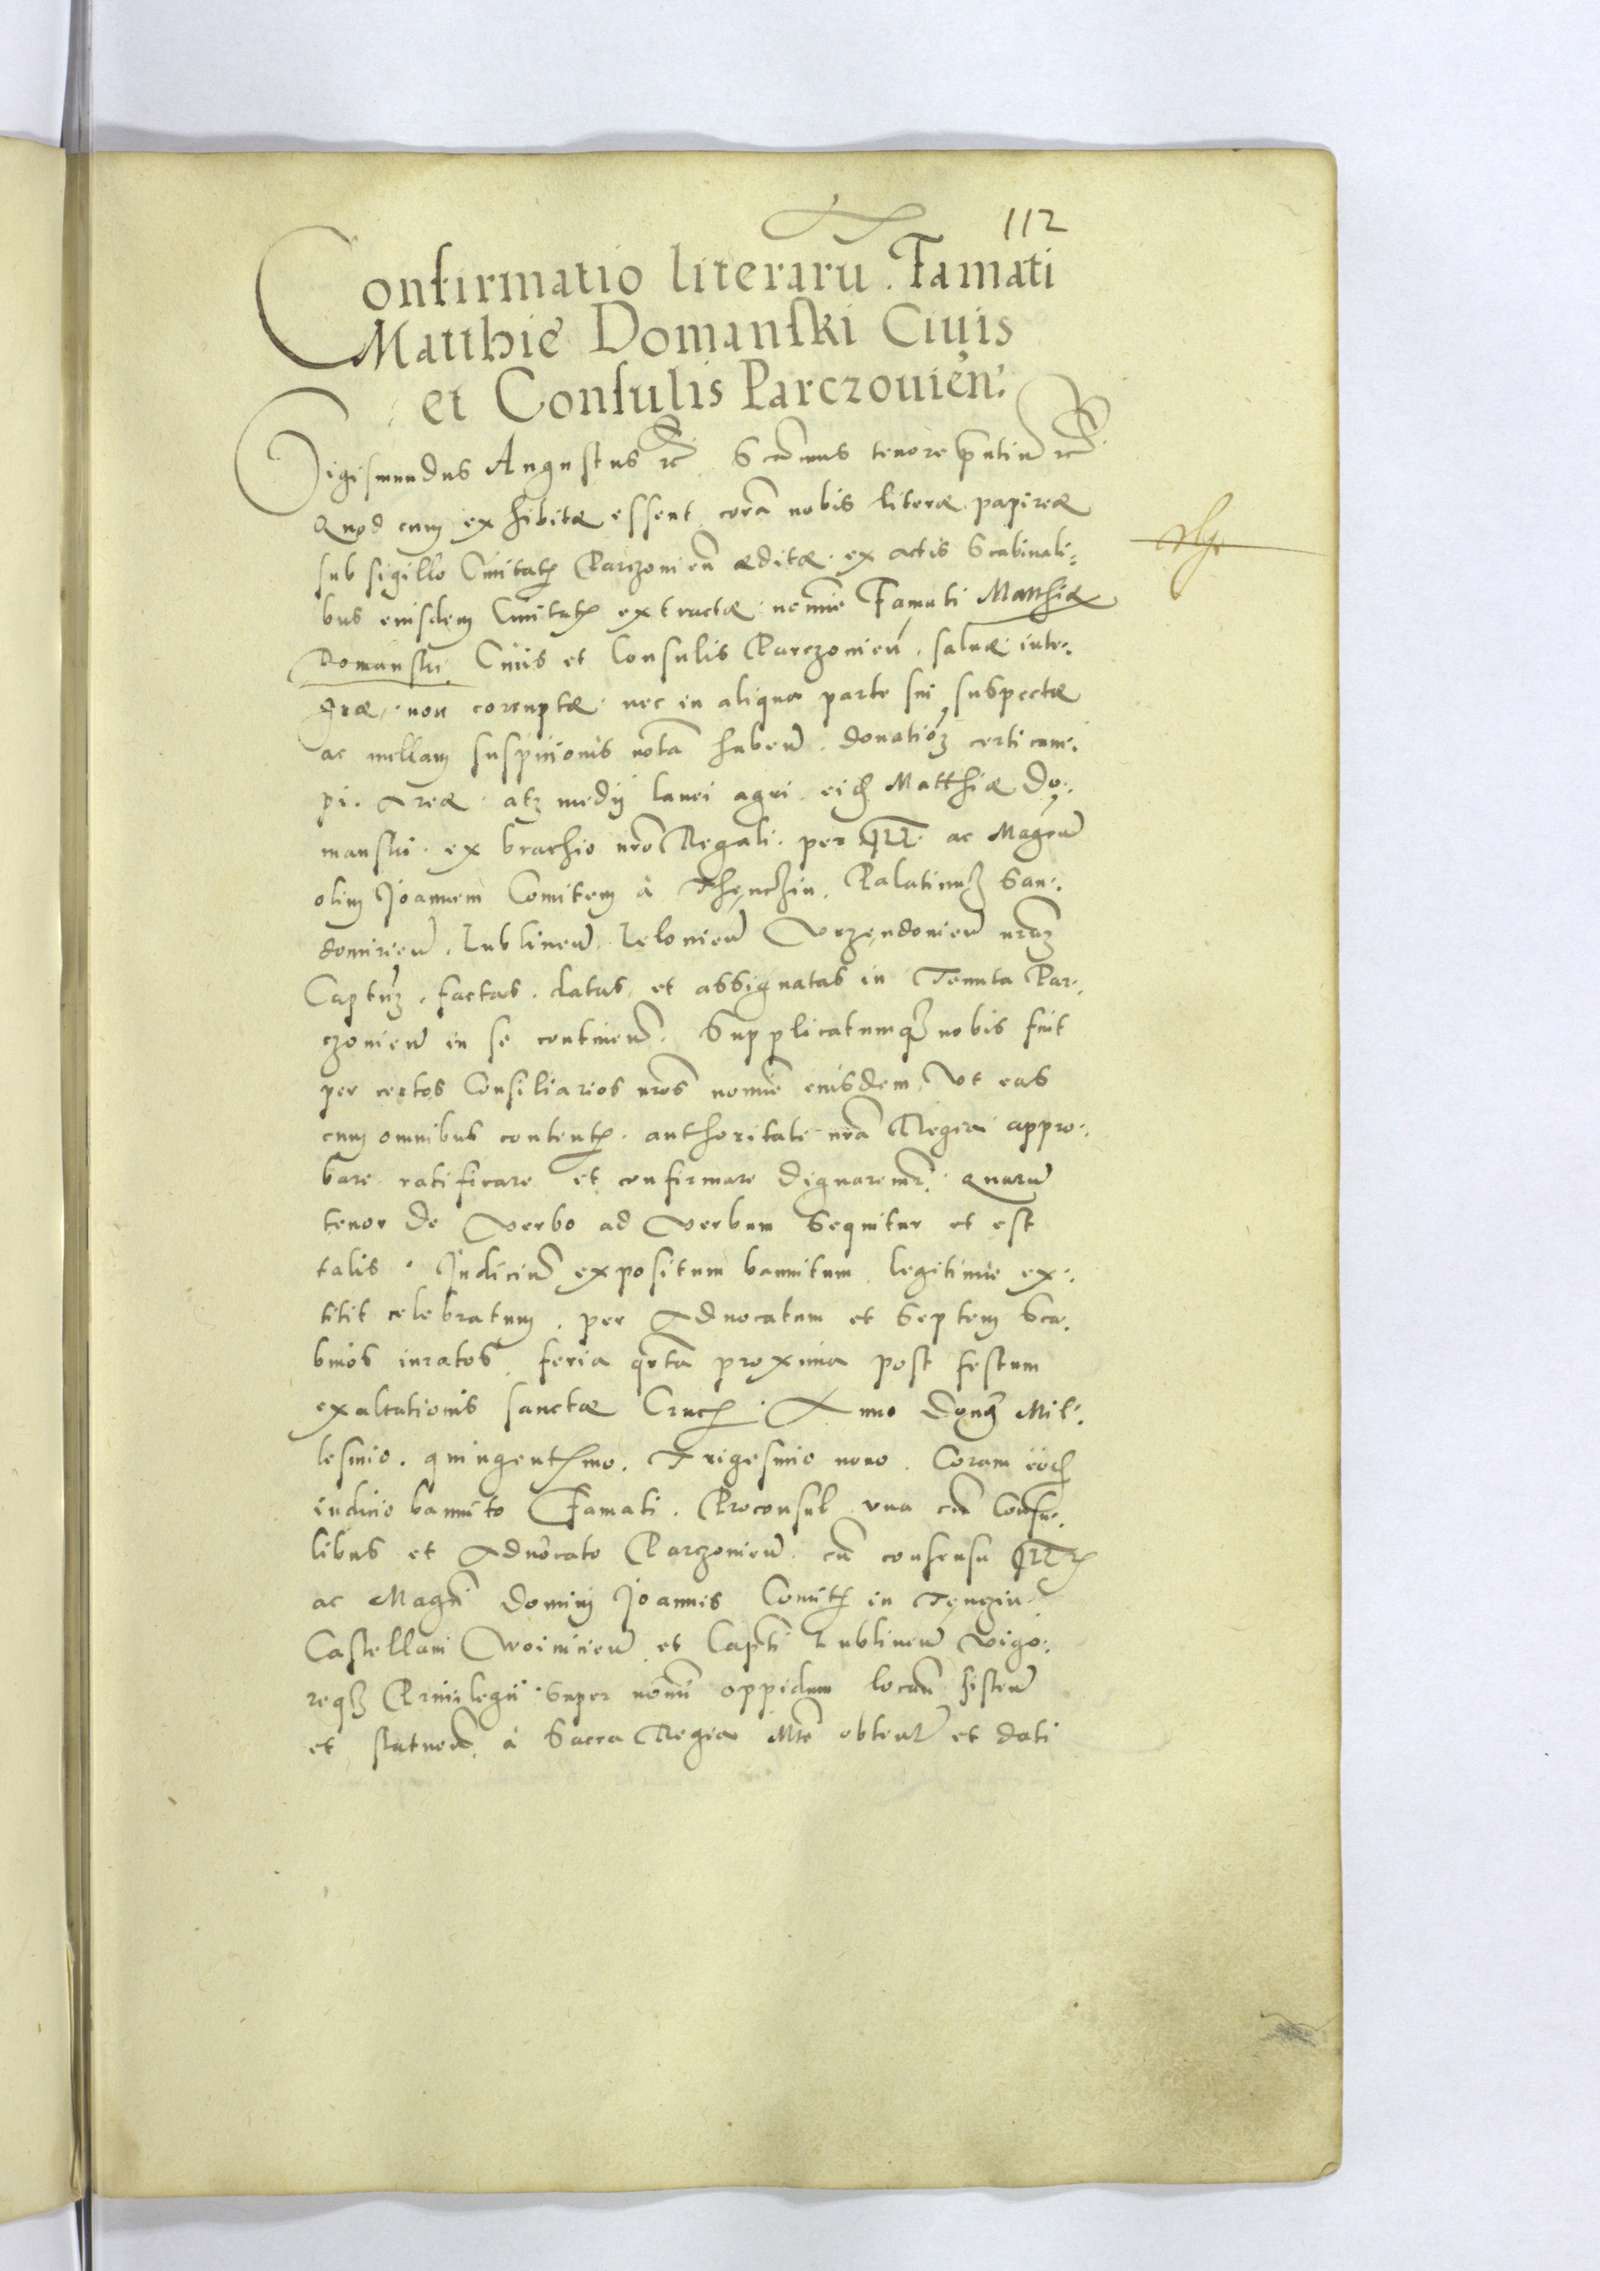 112
Confirmatio literarū. Famati
Matthię Domanski Ciuis
et Consulis Parczouień:
Sigismundus Augustus etc̄ Scām̄us tenore p̄ntiū etc̄
Quod cum exhibitæ essent corā nobis literæ papireæ
sub sigillo Ciuitatꝭ Parczouień æditæ ex actis Scabinali:
bus eiusdem Ciuitatꝭ extractæ noīne Famati Matthiæ
Domanski Ciuis et Consulis Parczouień, saluæ inte:
græ, non coruptæ nec in aliqua parte sui suspectæ
ac nullam suspicionis notā haben̄. donatioꝫ certi cam:
pi. Areæ atꝫ medij lanei agri eid Matthiæ Do:
manski ex brachio nr̄o Regali per Ill. ac Magcū
olim Joannem Comitem à Thęnczin, Palatinuꝫ San:
domirien̄. Lublinen̄. Zelouien̄ Vrzendouien̄ nrūꝫ
Captūꝫ, factas, datas et assignatas in Tenuta Par:
czouien̄ in se continen̄. Supplicatumqꝫ nobis fuit
per certos Consiliarios nr̄os nomīe eiusdem, Vt eas
cum omnibus contentꝭ authoritate nr̄a Regia appro:
bare ratificare et confirmare dignaremr̄. Quarū
tenor de Verbo ad Verbum Sequitur et est
talis. Judiciū expositum bannitum legitime ex:
titit celebratum, per Aduocatum et Septem Sca:
binos iuratos, feria qrtā proxima post festum
exaltationis sanctæ Crucꝭ. Anno Dongͫ Mil:
lesimo. quingentꝭmo. Trigesimo nono. Coram eōd
iudicio bannito Famati. Proconsul vna cū Consu:
libus et Aduocato Parczouien̄ cū consensu Illꝭ
ac Magcī Domini Joannis Comitꝭ in Tęnczin
Castellani Woinicien̄ et Captī Lublinen̄ Vigo:
reqꝫ Priuilegii Super nouū oppidum locan̄ sisten̄
et statuen̄ à Sacra Regia Mte obtent et dati